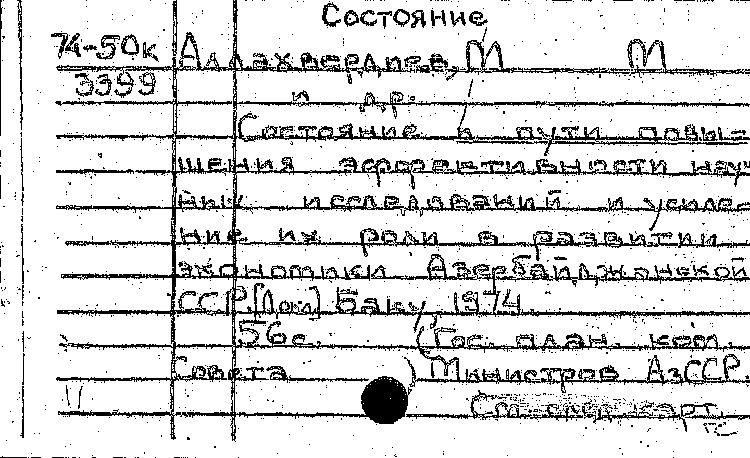 Состояние
74-50к Аллахвердиев, М М
3399 и др.
Состояние и пути повы-
шения эффективности науч
ных исследований и усиле-
ние их роли в развитии
экономики Азербайджанской
ССР. [Докл] Баку, 1974.
56с. (Гос. план. ком.
Совета Министров АзССР.
См. след. карт.